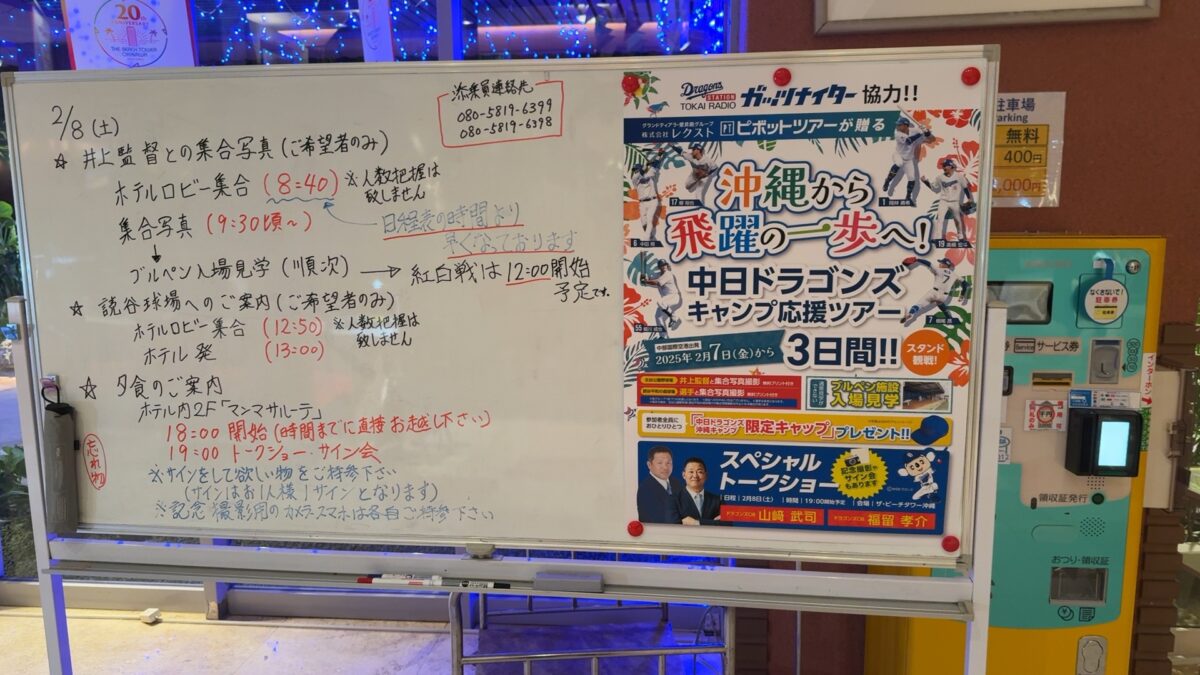 20th
ANNIVERSARY
THE BEACH TOWER
OKINAWA
2/8(土)
添乗員連絡先
080-5819-6399
080-5819-6398
☆ 井上監督との集合写真(ご希望者のみ)
ホテルロビー集合 (8:40) ※人数把握は
致しません
集合写真 (9:30頃~)
日経表の時間より
早くなっております
↓
ブルペン入場見学(順次) → 紅白戦は12:00開始
予定です。
☆ 読谷球場へのご案内(ご希望者のみ)
ホテルロビー集合 (12:50) ※人数把握は
致しません
ホテル発 (13:00)
☆ 夕食のご案内
ホテル内2F「マンマサルーテ」
18:00 開始(時間までに直接お越し下さい)
19:00 トークショー・サイン会
※サインをして欲しい物をご持参下さい
(サインはお1人様1サインとなります)
※記念撮影用のカメラ・スマホは各自ご持参下さい
忘れ物
Dragons
STATION
TOKAI RADIO ガッツナイター 協力!!
株式会社レクスト PT ピボットツアーが贈る
沖縄から
飛躍の一歩へ!
中日ドラゴンズ
キャンプ応援ツアー
中部国際空港出発
2025年2月7日(金)から 3日間!!
スタンド
観戦!
井上監督と集合写真撮影
選手と集合写真撮影
ブルペン施設
入場見学
参加者全員に
おひとりひとつ
「中日ドラゴンズ
沖縄キャンプ 限定キャップ」プレゼント!!
スペシャル
トークショー
記念撮影や
サイン会
もあります
日程|2月8日(土) |時間|19:00開始予定 |会場|ザ・ビーチタワー沖縄
ドラゴンズOB 山﨑 武司
ドラゴンズOB 福留 孝介
駐車場
Parking
無料
400円
,000円
なくさないで!
駐車券
Service サービス券
領収証発行
おつり・領収証